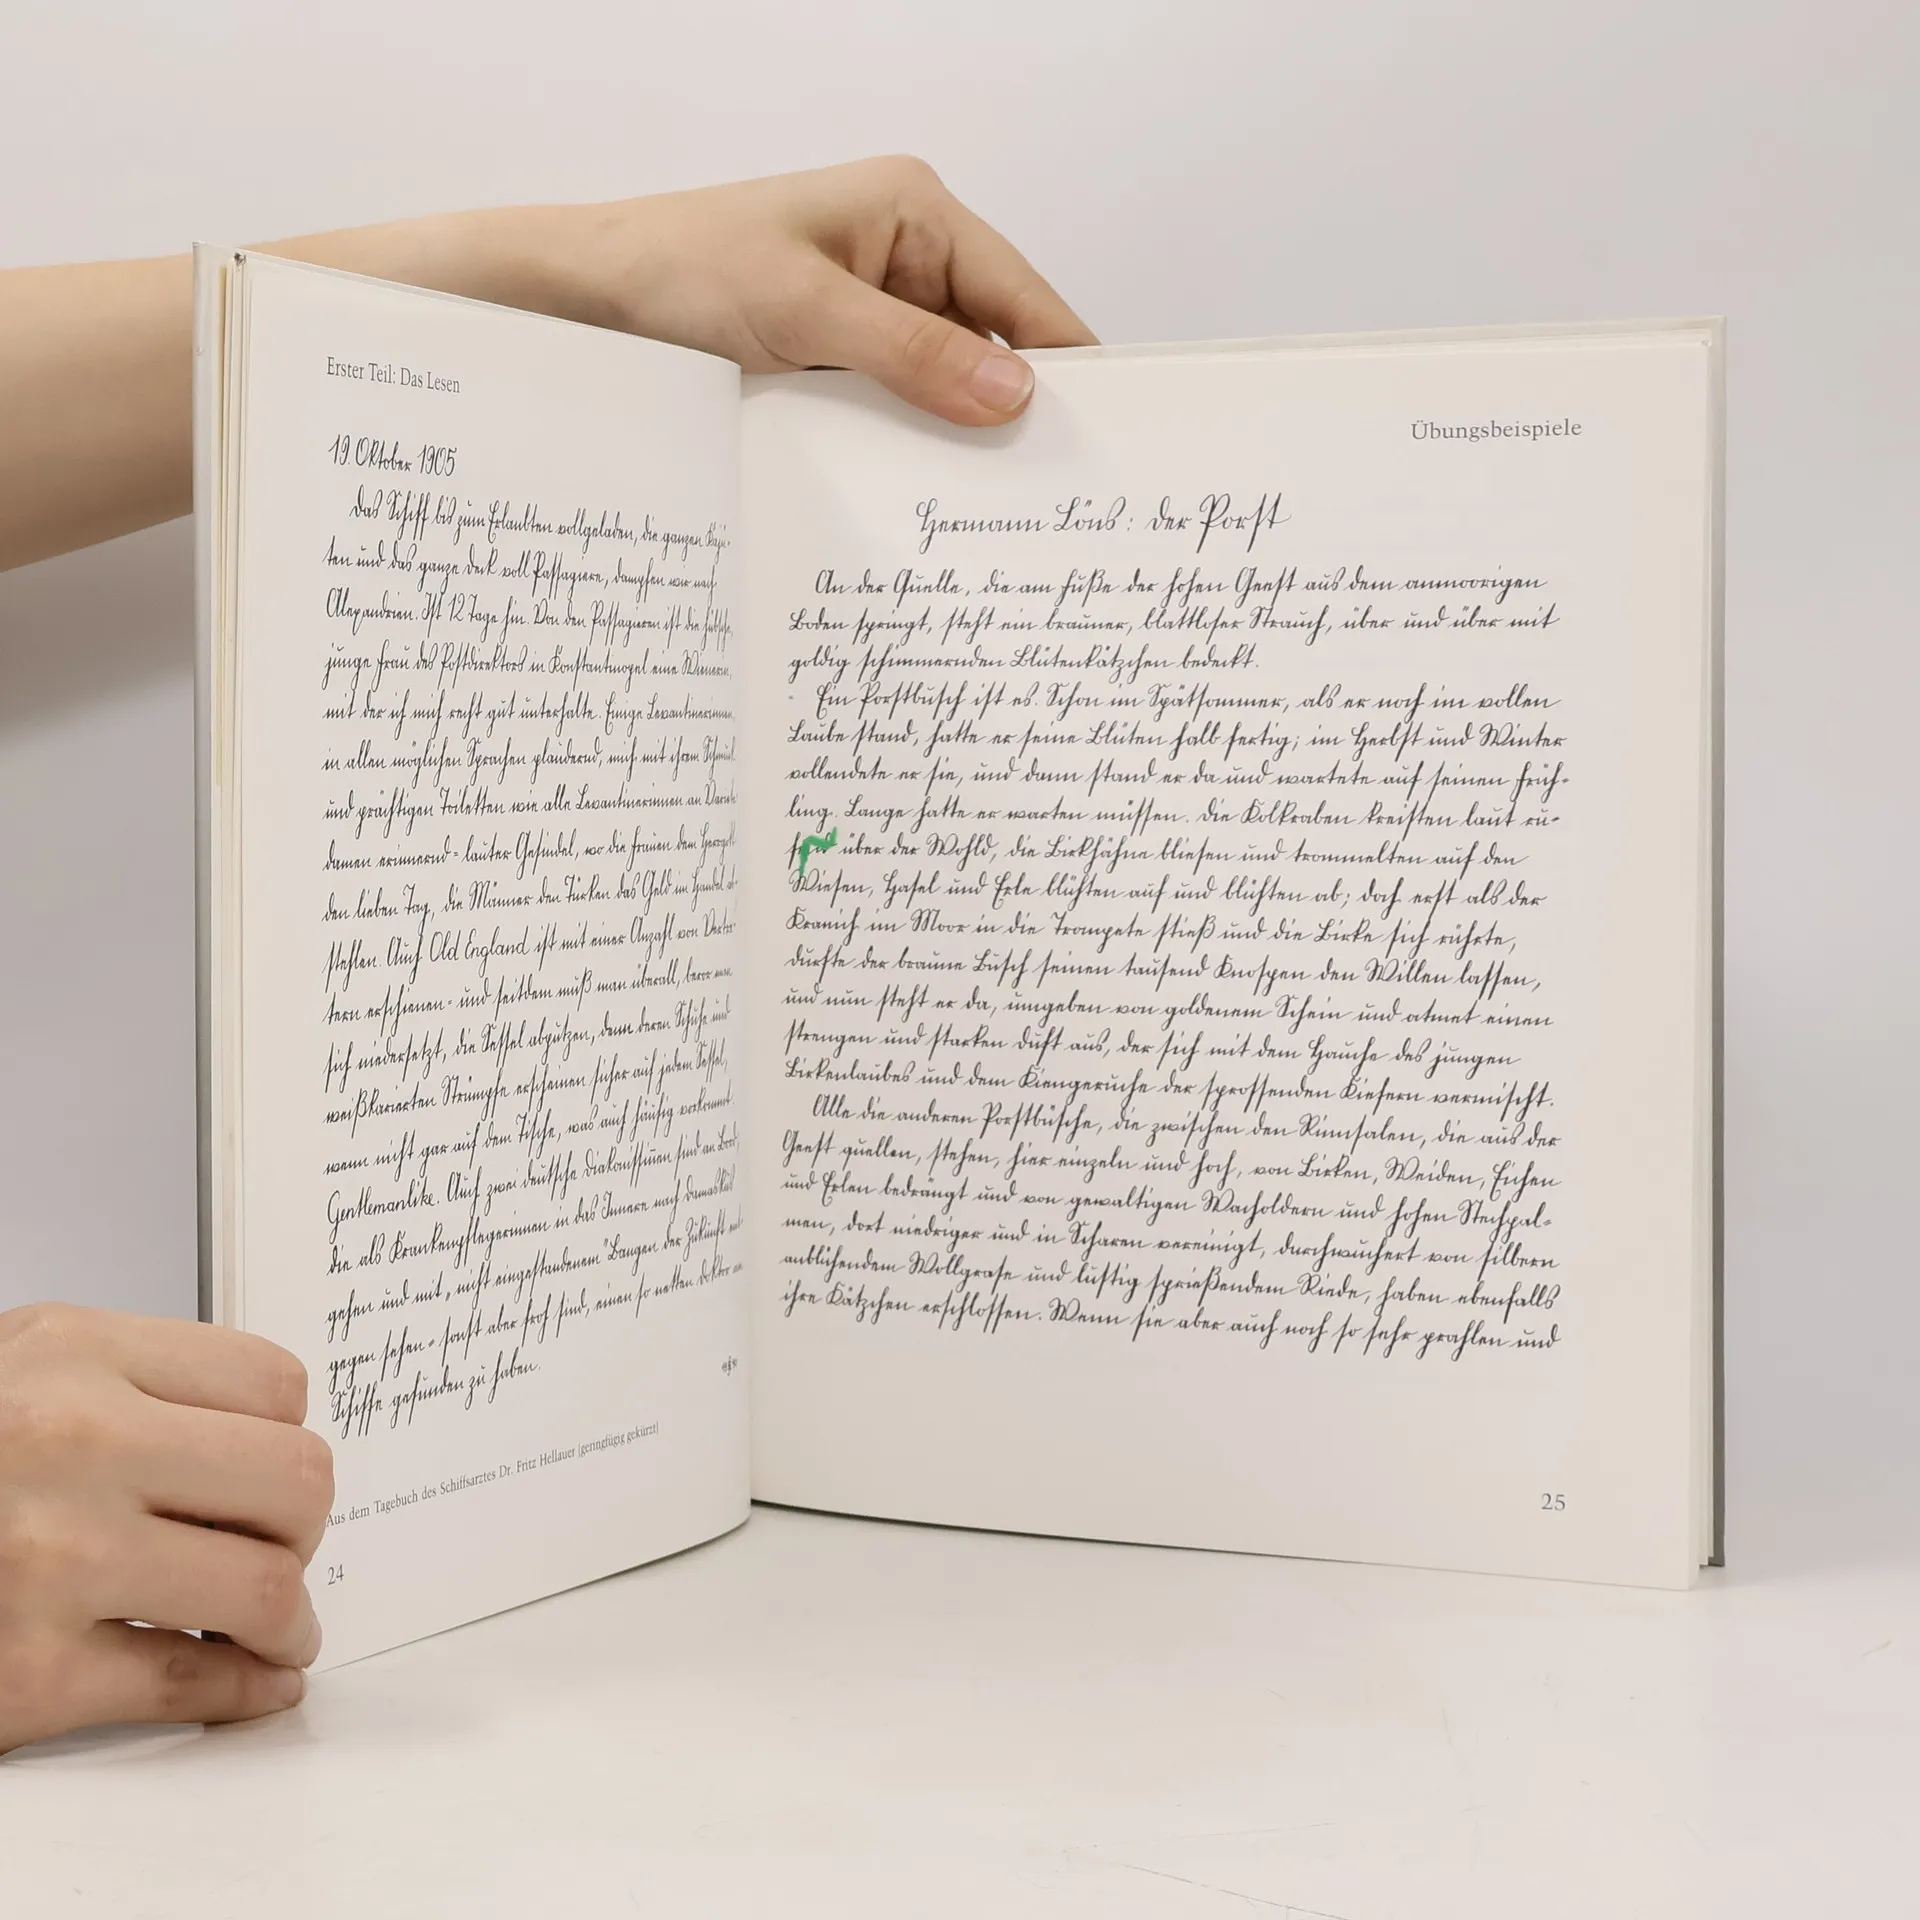 Erster Teil: Das Lesen
19. Oktober 1905
Das Schiff bis zum Erlaubten vollgeladen, die ganzen Kajü-
ten und das ganze Deck voll Passagiere, dampfen wir nach
Alexandrien. Ist 12 Tage hin. Von den Passagieren ist die hübsche,
junge Frau des Postdirektors in Konstantinopel eine Wienerin,
mit der ich mich recht gut unterhalte. Einige Levantinerinnen,
in allen möglichen Sprachen plaudernd, mich mit ihrem Schmuck
und prächtigen Toiletten wie alle Levantinerinnen an Varieté-
damen erinnernd - lauter Gesindel, wo die Frauen dem Herrgott
den lieben Tag, die Männer den Türken das Geld im Handel ab-
stehlen. Auch Old England ist mit einer Anzahl von Vertre-
tern erschienen - und seitdem muß man überall, bevor man
sich niedersetzt, die Sessel abputzen, denn deren Schuhe und
weißkarierten Strümpfe erscheinen sicher auf jedem Sessel,
wenn nicht gar auf dem Tische, was auch häufig vorkommt.
Gentlemanlike. Auch zwei deutsche Diakonissinnen sind an Bord,
die als Krankenpflegerinnen in das Innere nach Damaskus
gehen und mit „nicht eingestandenem" Bangen der Zukunft ent-
gegen sehen - sonst aber froh sind, einen so netten Doktor am
Schiffe gefunden zu haben.
Aus dem Tagebuch des Schiffsarztes Dr. Fritz Hellauer (geringfügig gekürzt)
24
Übungsbeispiele
Hermann Löns: Der Porst
An der Quelle, die am Fuße der hohen Geest aus dem anmoorigen
Boden springt, steht ein brauner, blattloser Strauch, über und über mit
goldig schimmernden Blütenkätzchen bedeckt.
Ein Porstbusch ist es. Schon im Spätsommer, als er noch im vollen
Laube stand, hatte er seine Blüten halb fertig; im Herbst und Winter
vollendete er sie, und dann stand er da und wartete auf seinen Früh-
ling. Lange hatte er warten müssen. Die Kolkraben kreisten laut ru-
fend über der Wohld, die Birkhähne bliesen und trommelten auf den
Wiesen, Hasel und Erle blühten auf und blühten ab; doch erst als der
Kranich im Moor in die Trompete stieß und die Birke sich rührte,
durfte der braune Busch seinen tausend Knospen den Willen lassen,
und nun steht er da, umgeben von goldenem Schein und atmet einen
strengen und starken Duft aus, der sich mit dem Hauche des jungen
Birkenlaubes und dem Kiengeruche der sprossenden Kiefern vermischt.
Alle die anderen Porstbüsche, die zwischen den Rinnsalen, die aus der
Geest quellen, stehen, hier einzeln und hoch, von Birken, Weiden, Eichen
und Erlen bedrängt und von gewaltigen Wacholdern und hohen Stechpal-
men, dort niedriger und in Scharen vereinigt, durchwuchert von silbern
aufblühendem Wollgrase und lustig sprießendem Riede, haben ebenfalls
ihre Kätzchen erschlossen. Wenn sie aber auch noch so sehr prahlen und
25